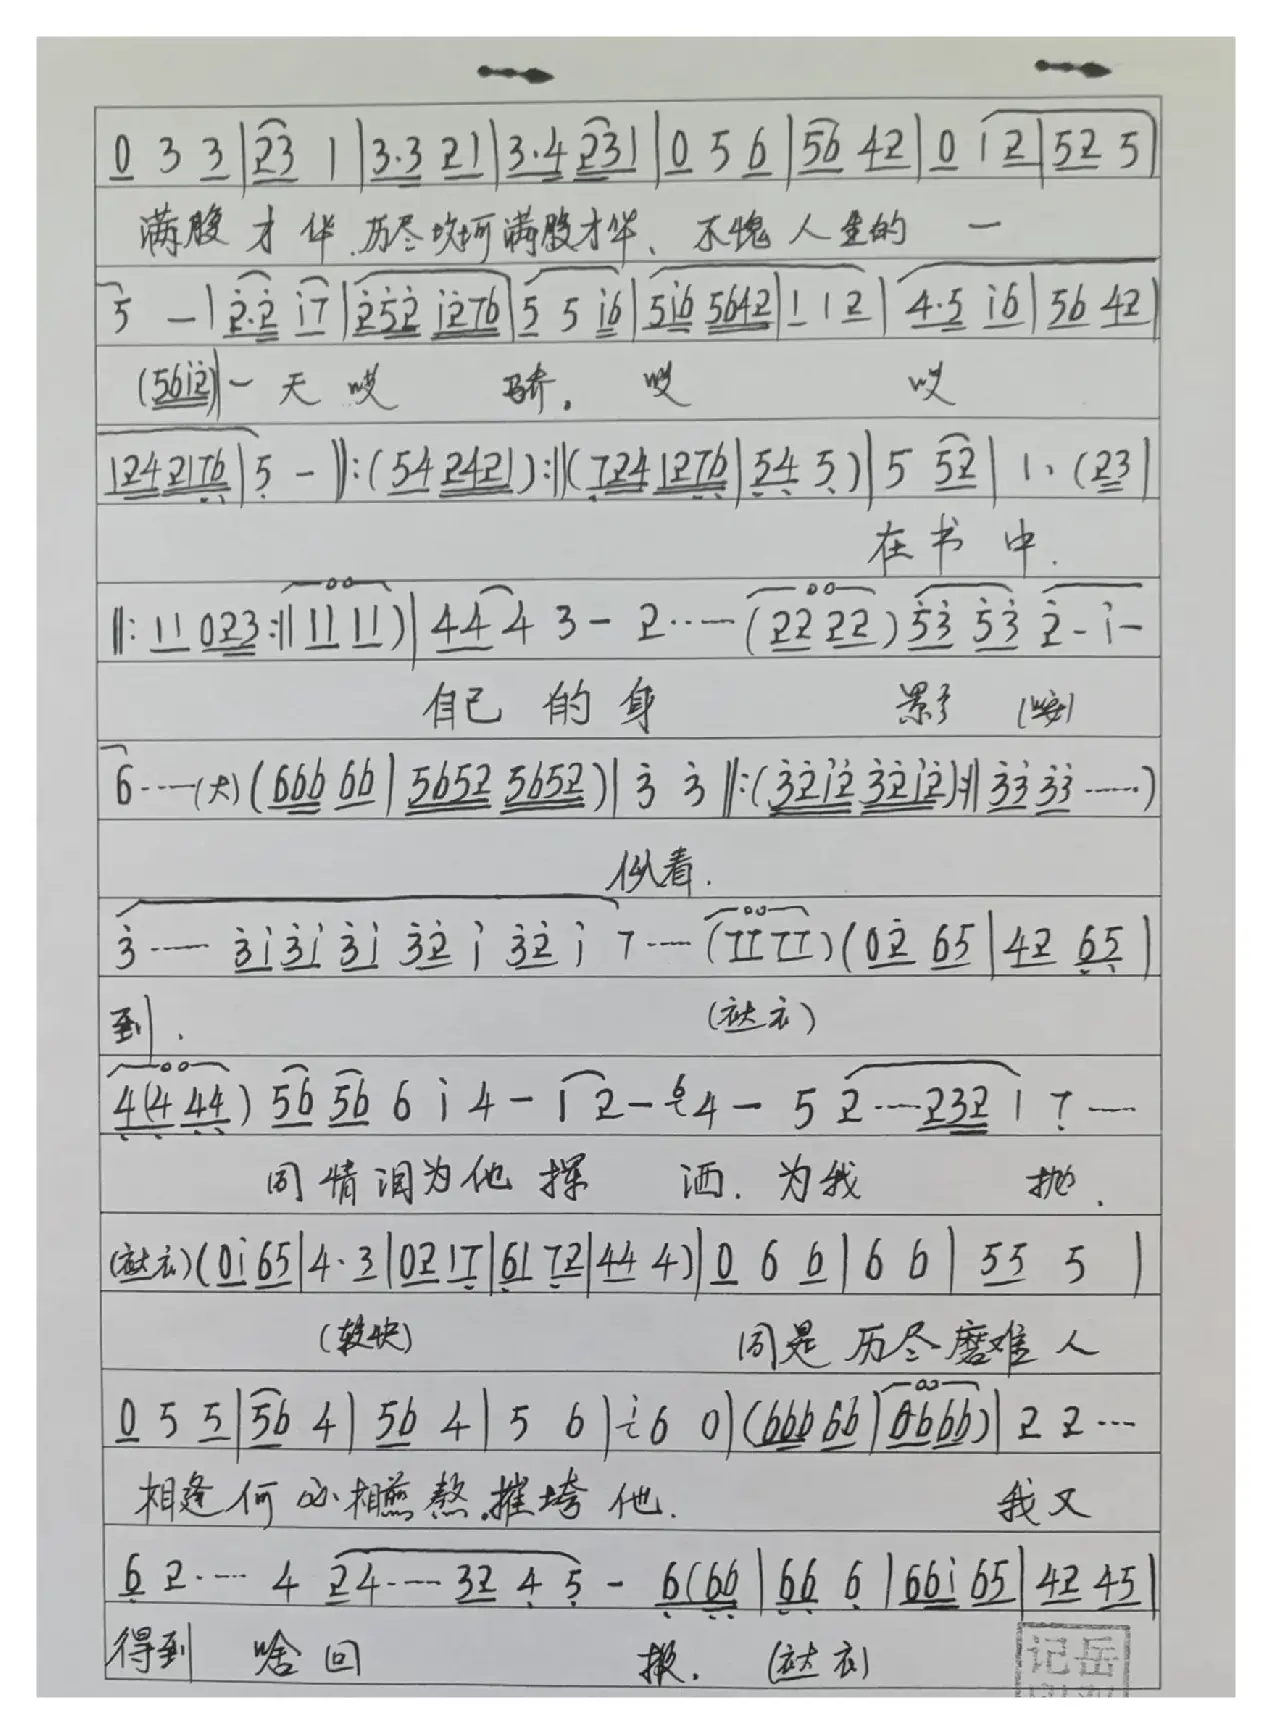 0 3 3 | 23 1 | 3·3 21 | 3·4 231 | 0 5 6 | 56 42 | 0 i 2 | 52 5 |
满腹才华.历尽坎坷满腹才华、不愧人生的 一
5 — | 2·2 i7 | 252 i276 | 5 5 i6 | 5i6 5642 | 1 1 2 | 4·5 i6 | 56 42 |
(56i2) 一 天 哎 骄. 哎 哎
124 2176 | 5 - ‖: (54 2421) :‖ (724 1276 | 54 5) | 5 52 | 1、(23 |
在 书 中.
‖: 11 023 :‖ 11 11) | 44 4 3 - 2…… (22 22) 53 53 2 - i -
自己 的 身 影 (唉)
6…… (大) (666 66 | 5652 5652) | 3 3 ‖: (32i2 32i2) :‖ 33 33 ……)
似看.
3…… 3i 3i 3i 32 i 32 i 7…… (77 77) (02 65 | 42 65 |
到. (衣)
4(4 44) 56 56 6 i 4 - i 2 - 6 4 - 5 2…… 232 1 7……
同情泪为他 洒. 为我 抛.
(衣) (0i 65 | 4·3 | 02 17 | 61 72 | 44 4) | 0 6 6 | 6 6 | 55 5 |
(较快) 同是 历尽磨难 人
0 5 5 | 56 4 | 56 4 | 5 6 | i 6 0 | (666 66 | 6666) | 2 2…
相逢何必相煎熬.摧垮他. 我又
6 2…… 4 24…… 32 4 5 - 6(66 | 66 6 | 66i 65 | 42 45 |
得到 啥回 报. (衣)
记岳